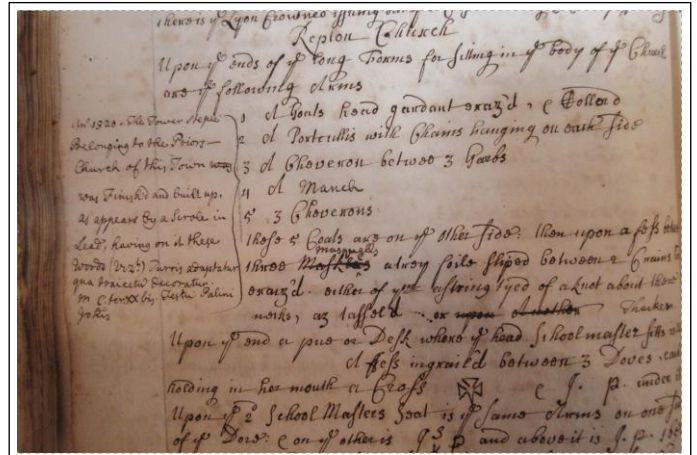 there is yᵉ Lyon Crowned issuing out
Repton Church
Upon yᵉ ends of yᵉ long Forms for sitting in yᵉ body of yᵉ Church
are yᵉ following Arms
1 A Goats head gardant eraz'd, & Collerd
2 A Portcullis with Chains hanging on each side
3 A Cheveron betwee 3 Garbs
4 A Manch
5 3 Cheverons
these 5 Coats are on yᵉ other side: then upon a fess betw
three a trey foile sliped between 2 Crains he
eraz'd. either of yᵐ a string tyed of a knot about there
necks, as tassel'd or upon Another Thacker
Upon yᵉ end a pue or Desk where yᵉ head Schoolmaster sitts
A fess ingrail'd between 3 Doves, each
holding in her mouth a Cross & J. P. under
Upon yᵉ 2ᵈ School Masters Seat is yᵉ same Arms on one side
of yᵉ Dore: & on yᵉ other is J. P and above it is J. P.
Anᵒ 1320. The Tower Steple
Belonging to the Priory
Church of this Town was
was Finish'd and built up,
as appears by a Scrole in
Lead, having on it these
words (Vizᵗ) Turris adaptatur
qua traiectu decoratur
M C ter XX bis. Testu Palini
Johis